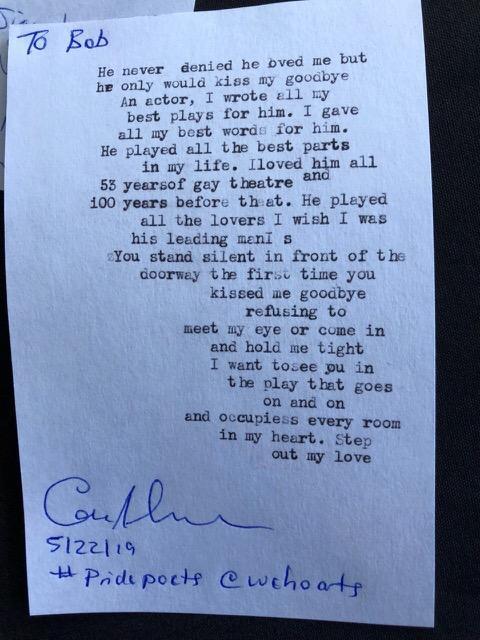 To Bob
He never denied he oved me but
he only would kiss my goodbye
An actor, I wrote all my
best plays for him. I gave
all my best words for him.
He played all the best parts
in my life. Iloved him all
53 yearsof gay theatre and
100 years before that. He played
all the lovers I wish I was
his leading manI s
You stand silent in front of the
doorway the first time you
kissed me goodbye
refusing to
meet my eye or come in
and hold me tight
I want tosee you in
the play that goes
on and on
and occupiess every room
in my heart. Step
out my love
5/22/19
# Pridepoets @wehoarts